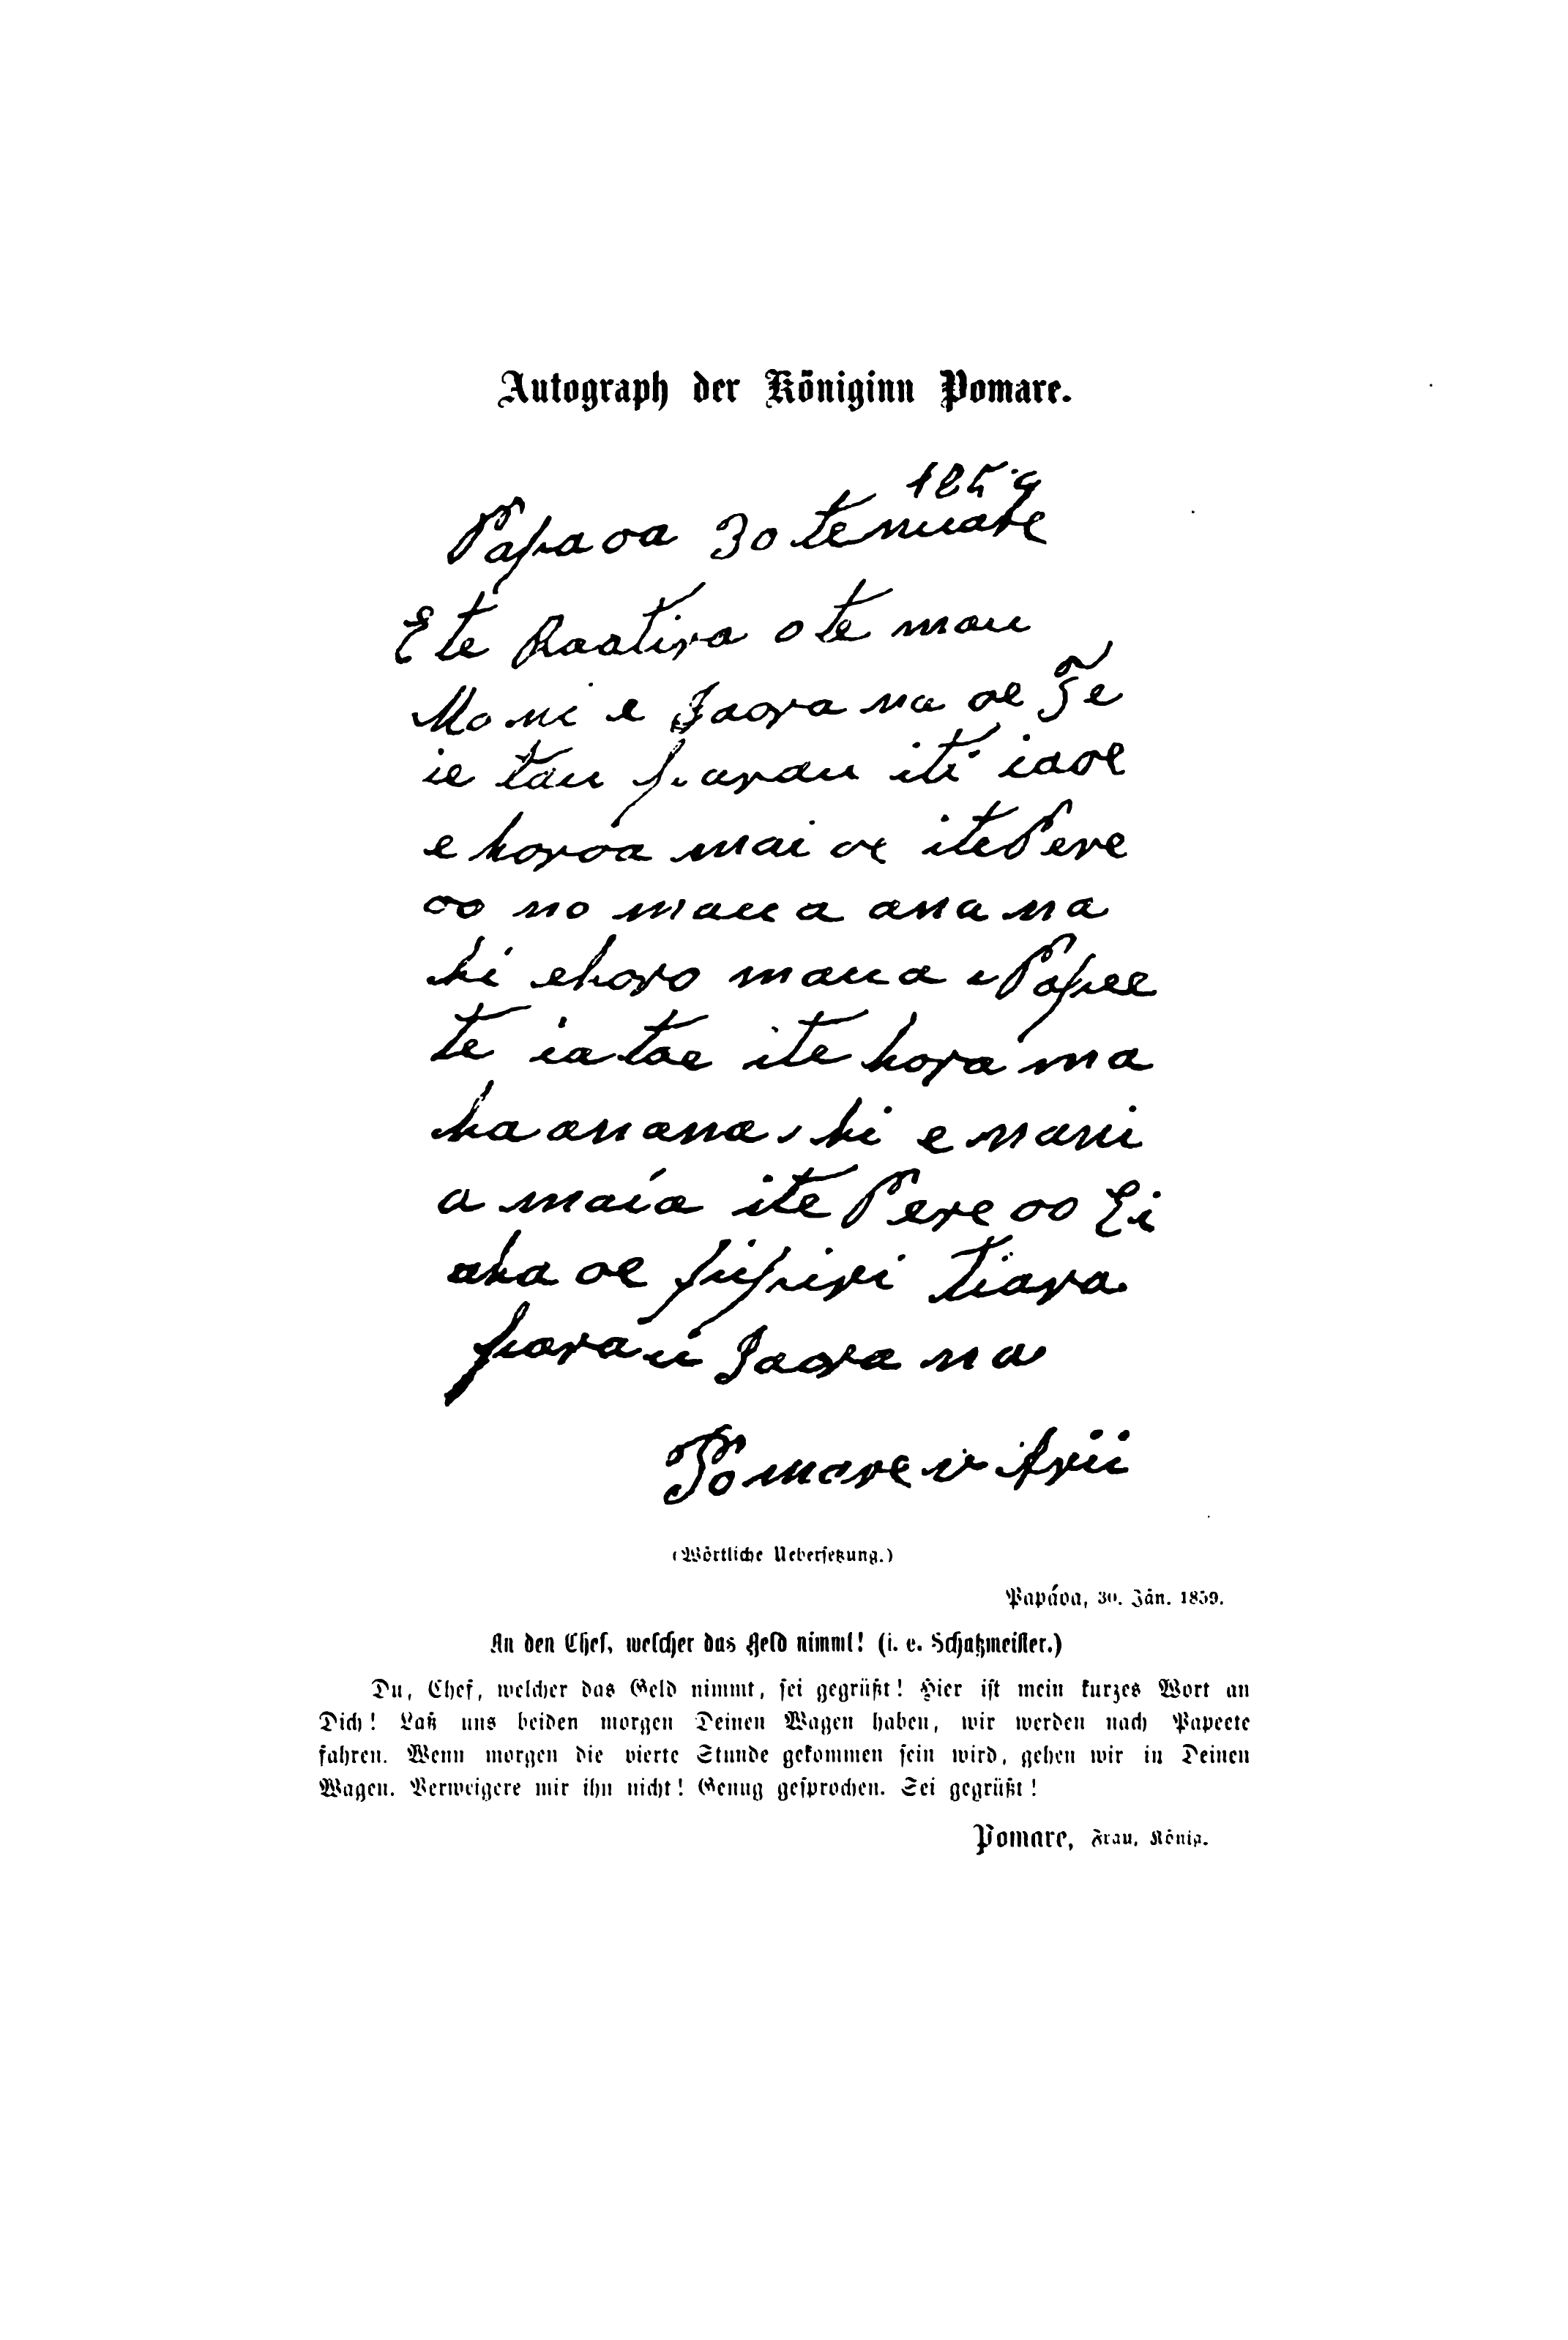 Autograph der Königinn Pomare.
1859
Papaoa 30 tenuare
E te Raatira o te mau
Moni e Iaora na oe Te
ie tau parau iti iaoe
e horoa mai oe itePere
oo no maua ana na
hi ehoro maua i Papee
te ia tae ite hora ma
ha anana hi e nani
a maia ite Pere oo Ei
aha oe pipiri tiara
parau Iaora na
Pomare v Arii
(Wörtliche Uebersetzung.)
Papáoa, 30. Jän. 1859.
An den Chef, welcher das Geld nimmt! (i. e. Schatzmeister.)
Du, Chef, welcher das Geld nimmt, sei gegrüßt! Hier ist mein kurzes Wort an
Dich! Laß uns beiden morgen Deinen Wagen haben, wir werden nach Papeete
fahren. Wenn morgen die vierte Stunde gekommen sein wird, gehen wir in Deinen
Wagen. Verweigere mir ihn nicht! Genug gesprochen. Sei gegrüßt!
Pomare, Frau, König.